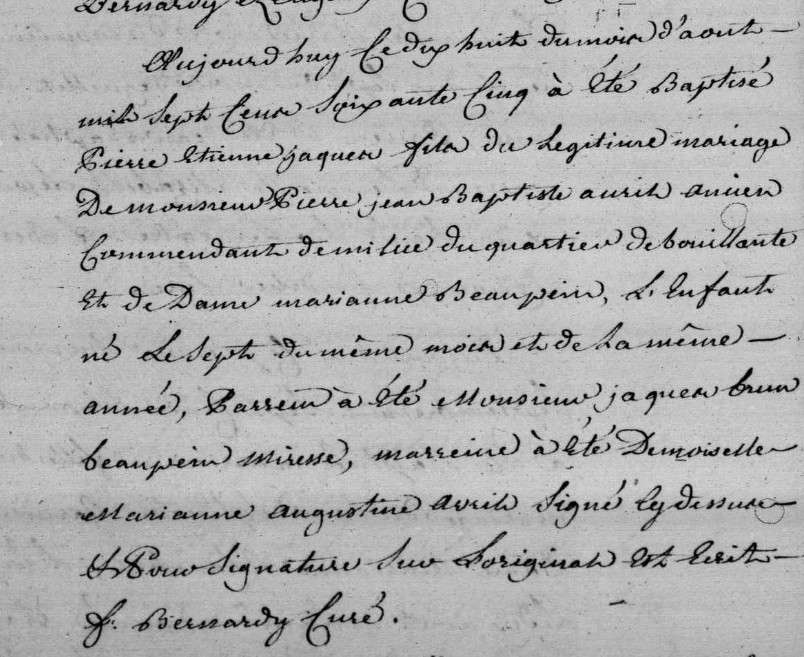 Bernardy
Aujourdhuy Ce dix huit du mois d'aout —
mil Sept Cens Soixante Cinq à Été Baptisé
Pierre Etienne jaques fils du Legitime mariage
De monsieur Pierre jean Baptiste avril ancien
Commendant de milice du quartier de bouillante
Et de Dame marianne Beaupein, L'Enfant
né Le sept du même mois et de La même —
année, Parrein à Été Monsieur jaques brun
beaupein miresse, marreine à Été Demoiselle
Marianne augustine avril Signé Cy dessus
& Pour Signature Sur L'original Est Ecrit —
f. Bernardy Curé.